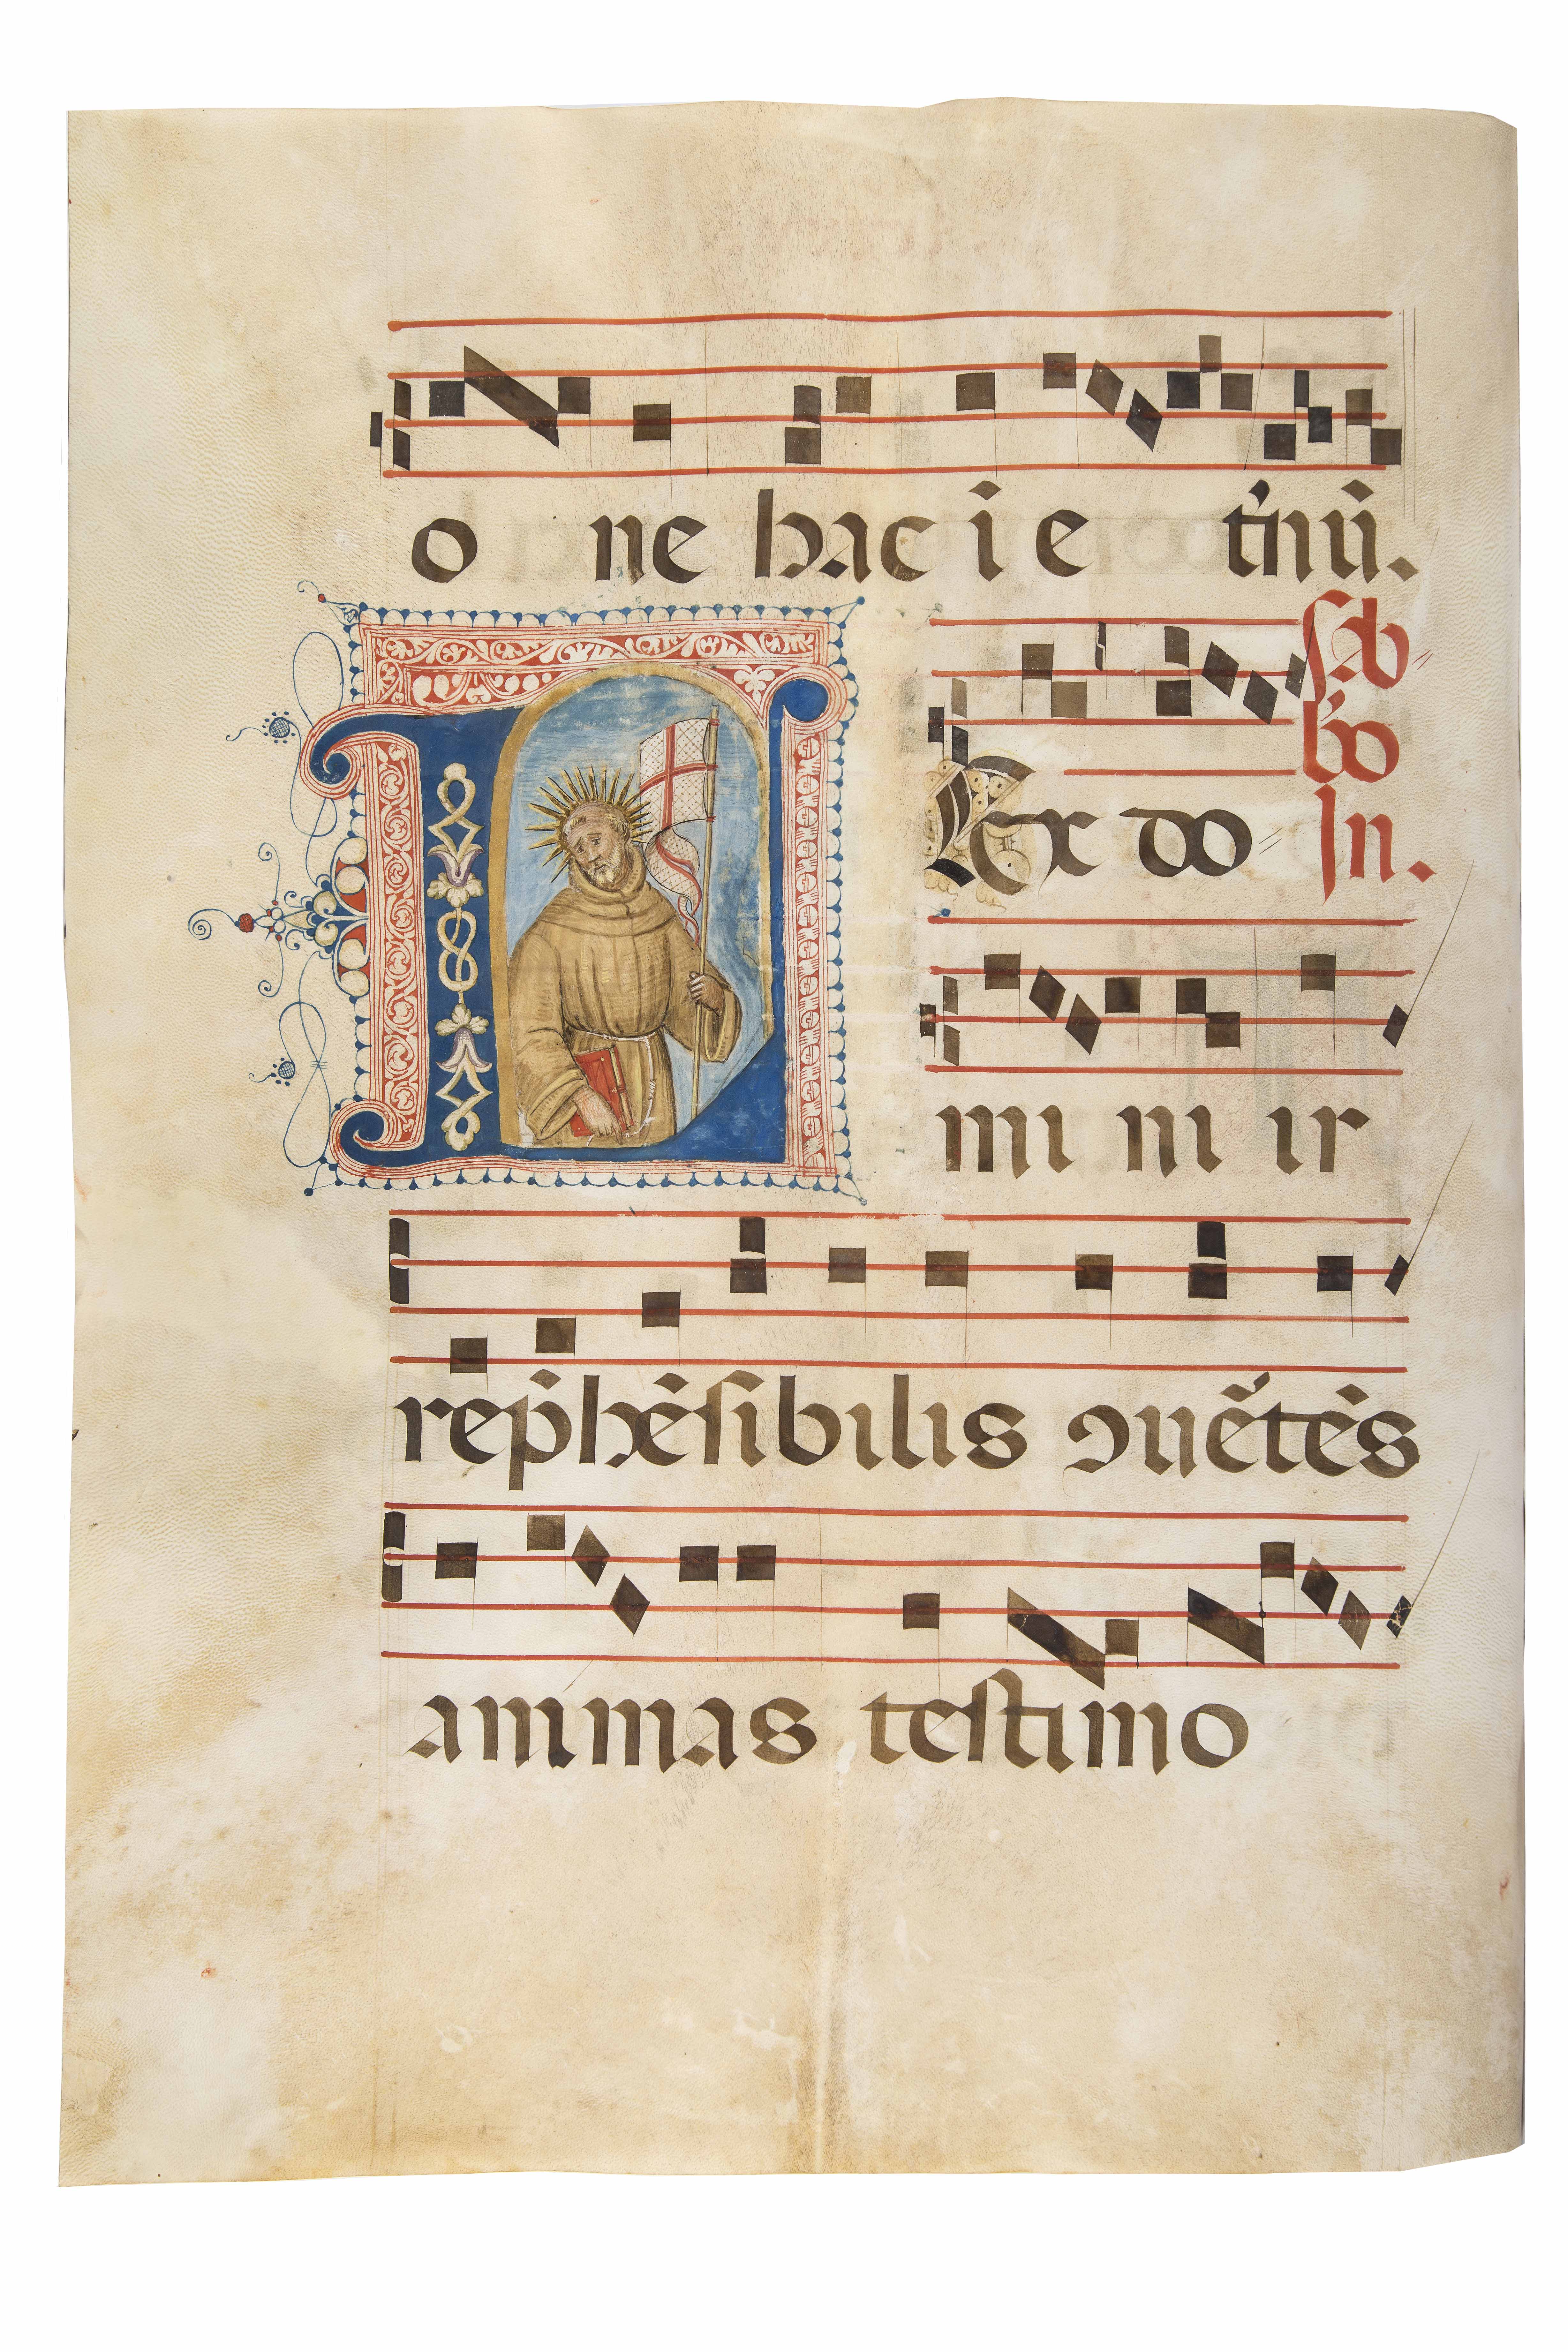 o ne hac i e t'nū.
Sab-
b'o
In.
Lex do=
mi ni ir
rep̄hēsibilis ꝯuētēs
animas testimo